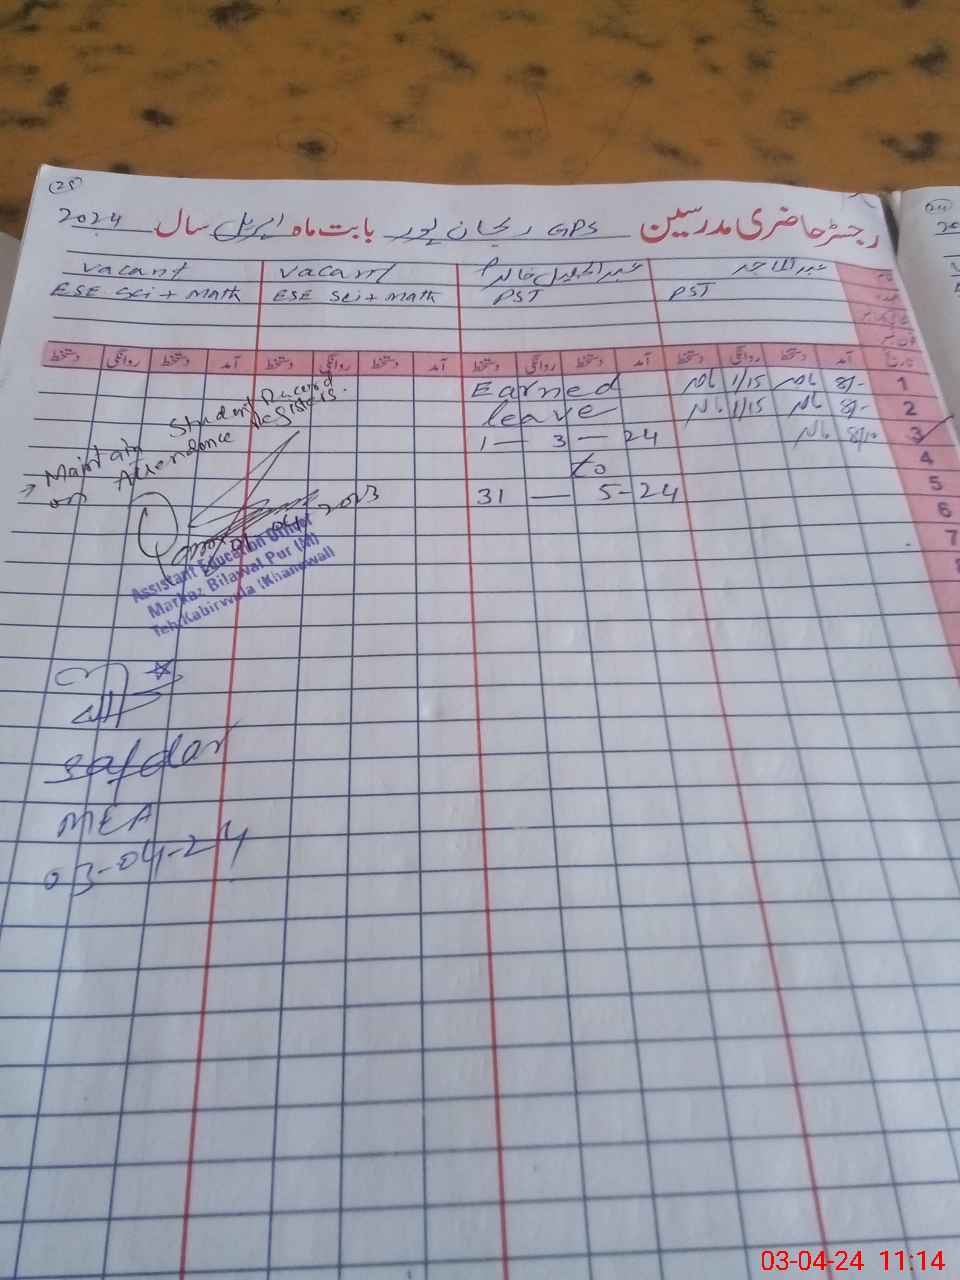 (25)
رجسٹر حاضری مدرسین GPS ریحان پور بابت ماہ اپریل سال 2024
عبدالماجد عبدالجلیل خالد vacant vacant
PST PST ESE Sci + math ESE Sci + Math
تاریخ آمد دستخط روانگی دستخط آمد دستخط روانگی دستخط آمد دستخط روانگی دستخط آمد دستخط روانگی دستخط
1 8/- 1/15 Earned
2 8/- 1/15 leave
3 1 — 3 — 24
4 to
5 31 — 5-24
6
7
8
→ Maintain Student Record
on Attendence Registers.
Assistant Education Officer
Markaz Bilawal Pur (M)
Teh:Kabirwala (Khanewal)
Safdar
MEA
03-04-24
03-04-24 11:14